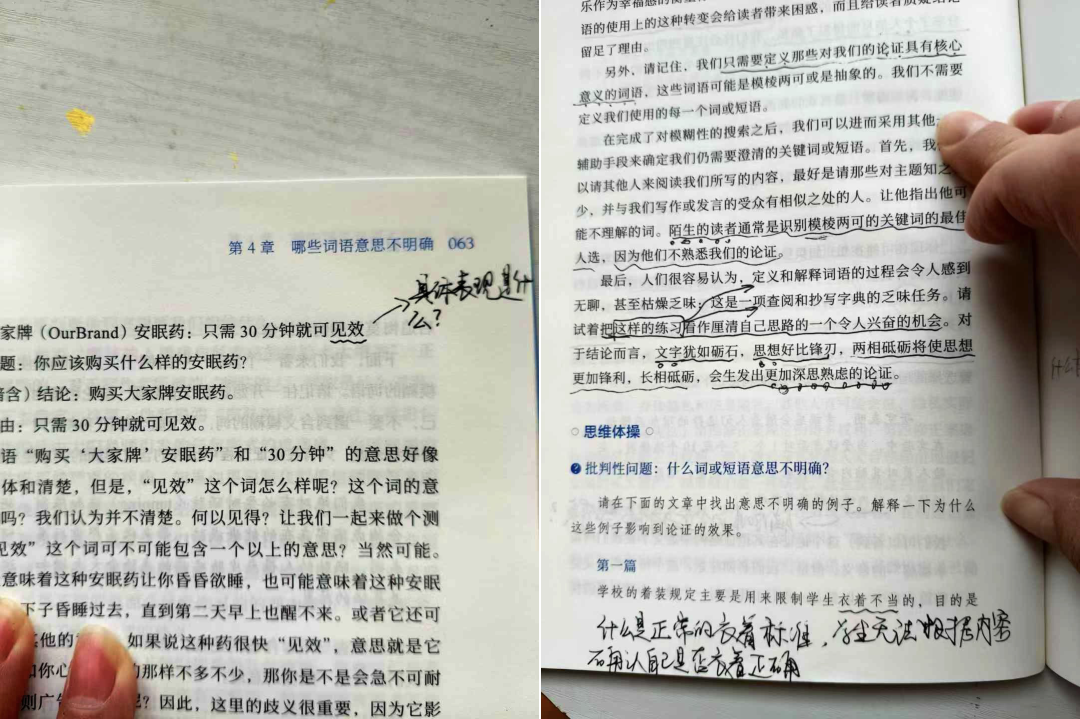 第4章 哪些词语意思不明确 063
具体表现是什
么？
家牌（OurBrand）安眠药：只需30分钟就可见效
题：你应该购买什么样的安眠药？
含）结论：购买大家牌安眠药。
由：只需30分钟就可见效。
语“购买‘大家牌’安眠药”和“30分钟”的意思好像
体和清楚，但是，“见效”这个词怎么样呢？这个词的意
吗？我们认为并不清楚。何以见得？让我们一起来做个测
见效”这个词可不可能包含一个以上的意思？当然可能。
意味着这种安眠药让你昏昏欲睡，也可能意味着这种安眠
下子昏睡过去，直到第二天早上也醒不来。或者它还可
其他的 如果说这种药很快“见效”，意思就是它
如你心 的那样不多不少，那你是不是会急不可耐
则广 呢？因此，这里的歧义很重要，因为它影
乐作为幸福感的
语的使用上的这种转变会给读者带来困惑，而且给读者质疑结论
留足了理由。
另外，请记住，我们只需要定义那些对我们的论证具有核心
意义的词语，这些词语可能是模棱两可或是抽象的。我们不需要
定义我们使用的每一个词或短语。
在完成了对模糊性的搜索之后，我们可以进而采用其他
辅助手段来确定我们仍需要澄清的关键词或短语。首先，我
以请其他人来阅读我们所写的内容，最好是请那些对主题知之
少，并与我们写作或发言的受众有相似之处的人。让他指出他可
能不理解的词。陌生的读者通常是识别模棱两可的关键词的最佳
人选，因为他们不熟悉我们的论证。
最后，人们很容易认为，定义和解释词语的过程会令人感到
无聊，甚至枯燥乏味；这是一项查阅和抄写字典的乏味任务。请
试着把这样的练习看作厘清自己思路的一个令人兴奋的机会。对
于结论而言，文字犹如砺石，思想好比锋刃，两相砥砺将使思想
更加锋利，长相砥砺，会生发出更加深思熟虑的论证。
思维体操
? 批判性问题：什么词或短语意思不明确？
请在下面的文章中找出意思不明确的例子。解释一下为什么
这些例子影响到论证的效果。
第一篇
学校的着装规定主要是用来限制学生衣着不当的，目的是
什么是正常的衣着标准，学生无法根据内容
确认自己是否衣着正确